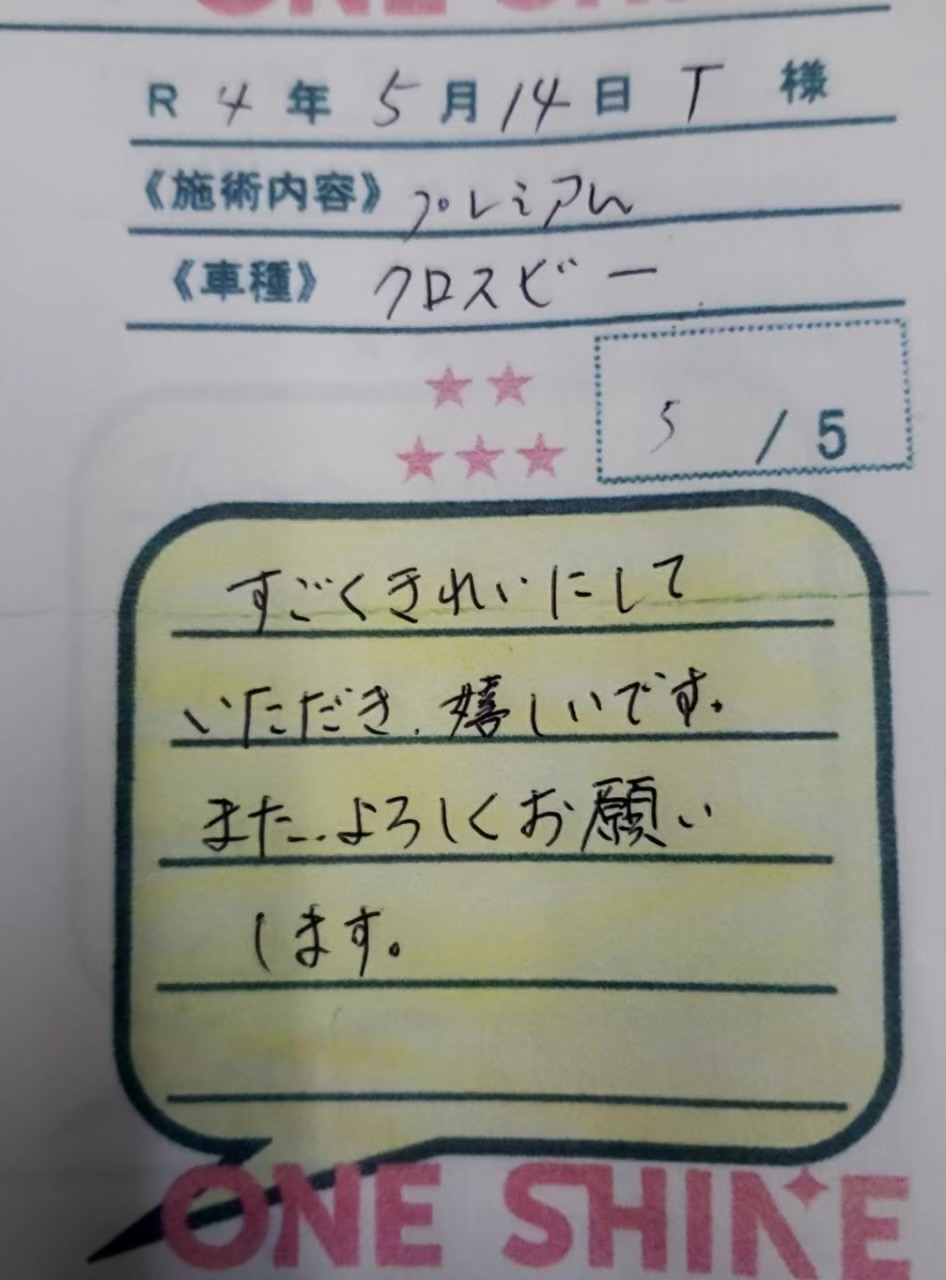 ONE SHINE
R 4 年 5 月 14 日 T 様
《施術内容》プレミアム
《車種》クロスビー
★★
★★★
5 / 5
すごくきれいにして
いただき、嬉しいです。
また、よろしくお願い
します。
ONE SHINE